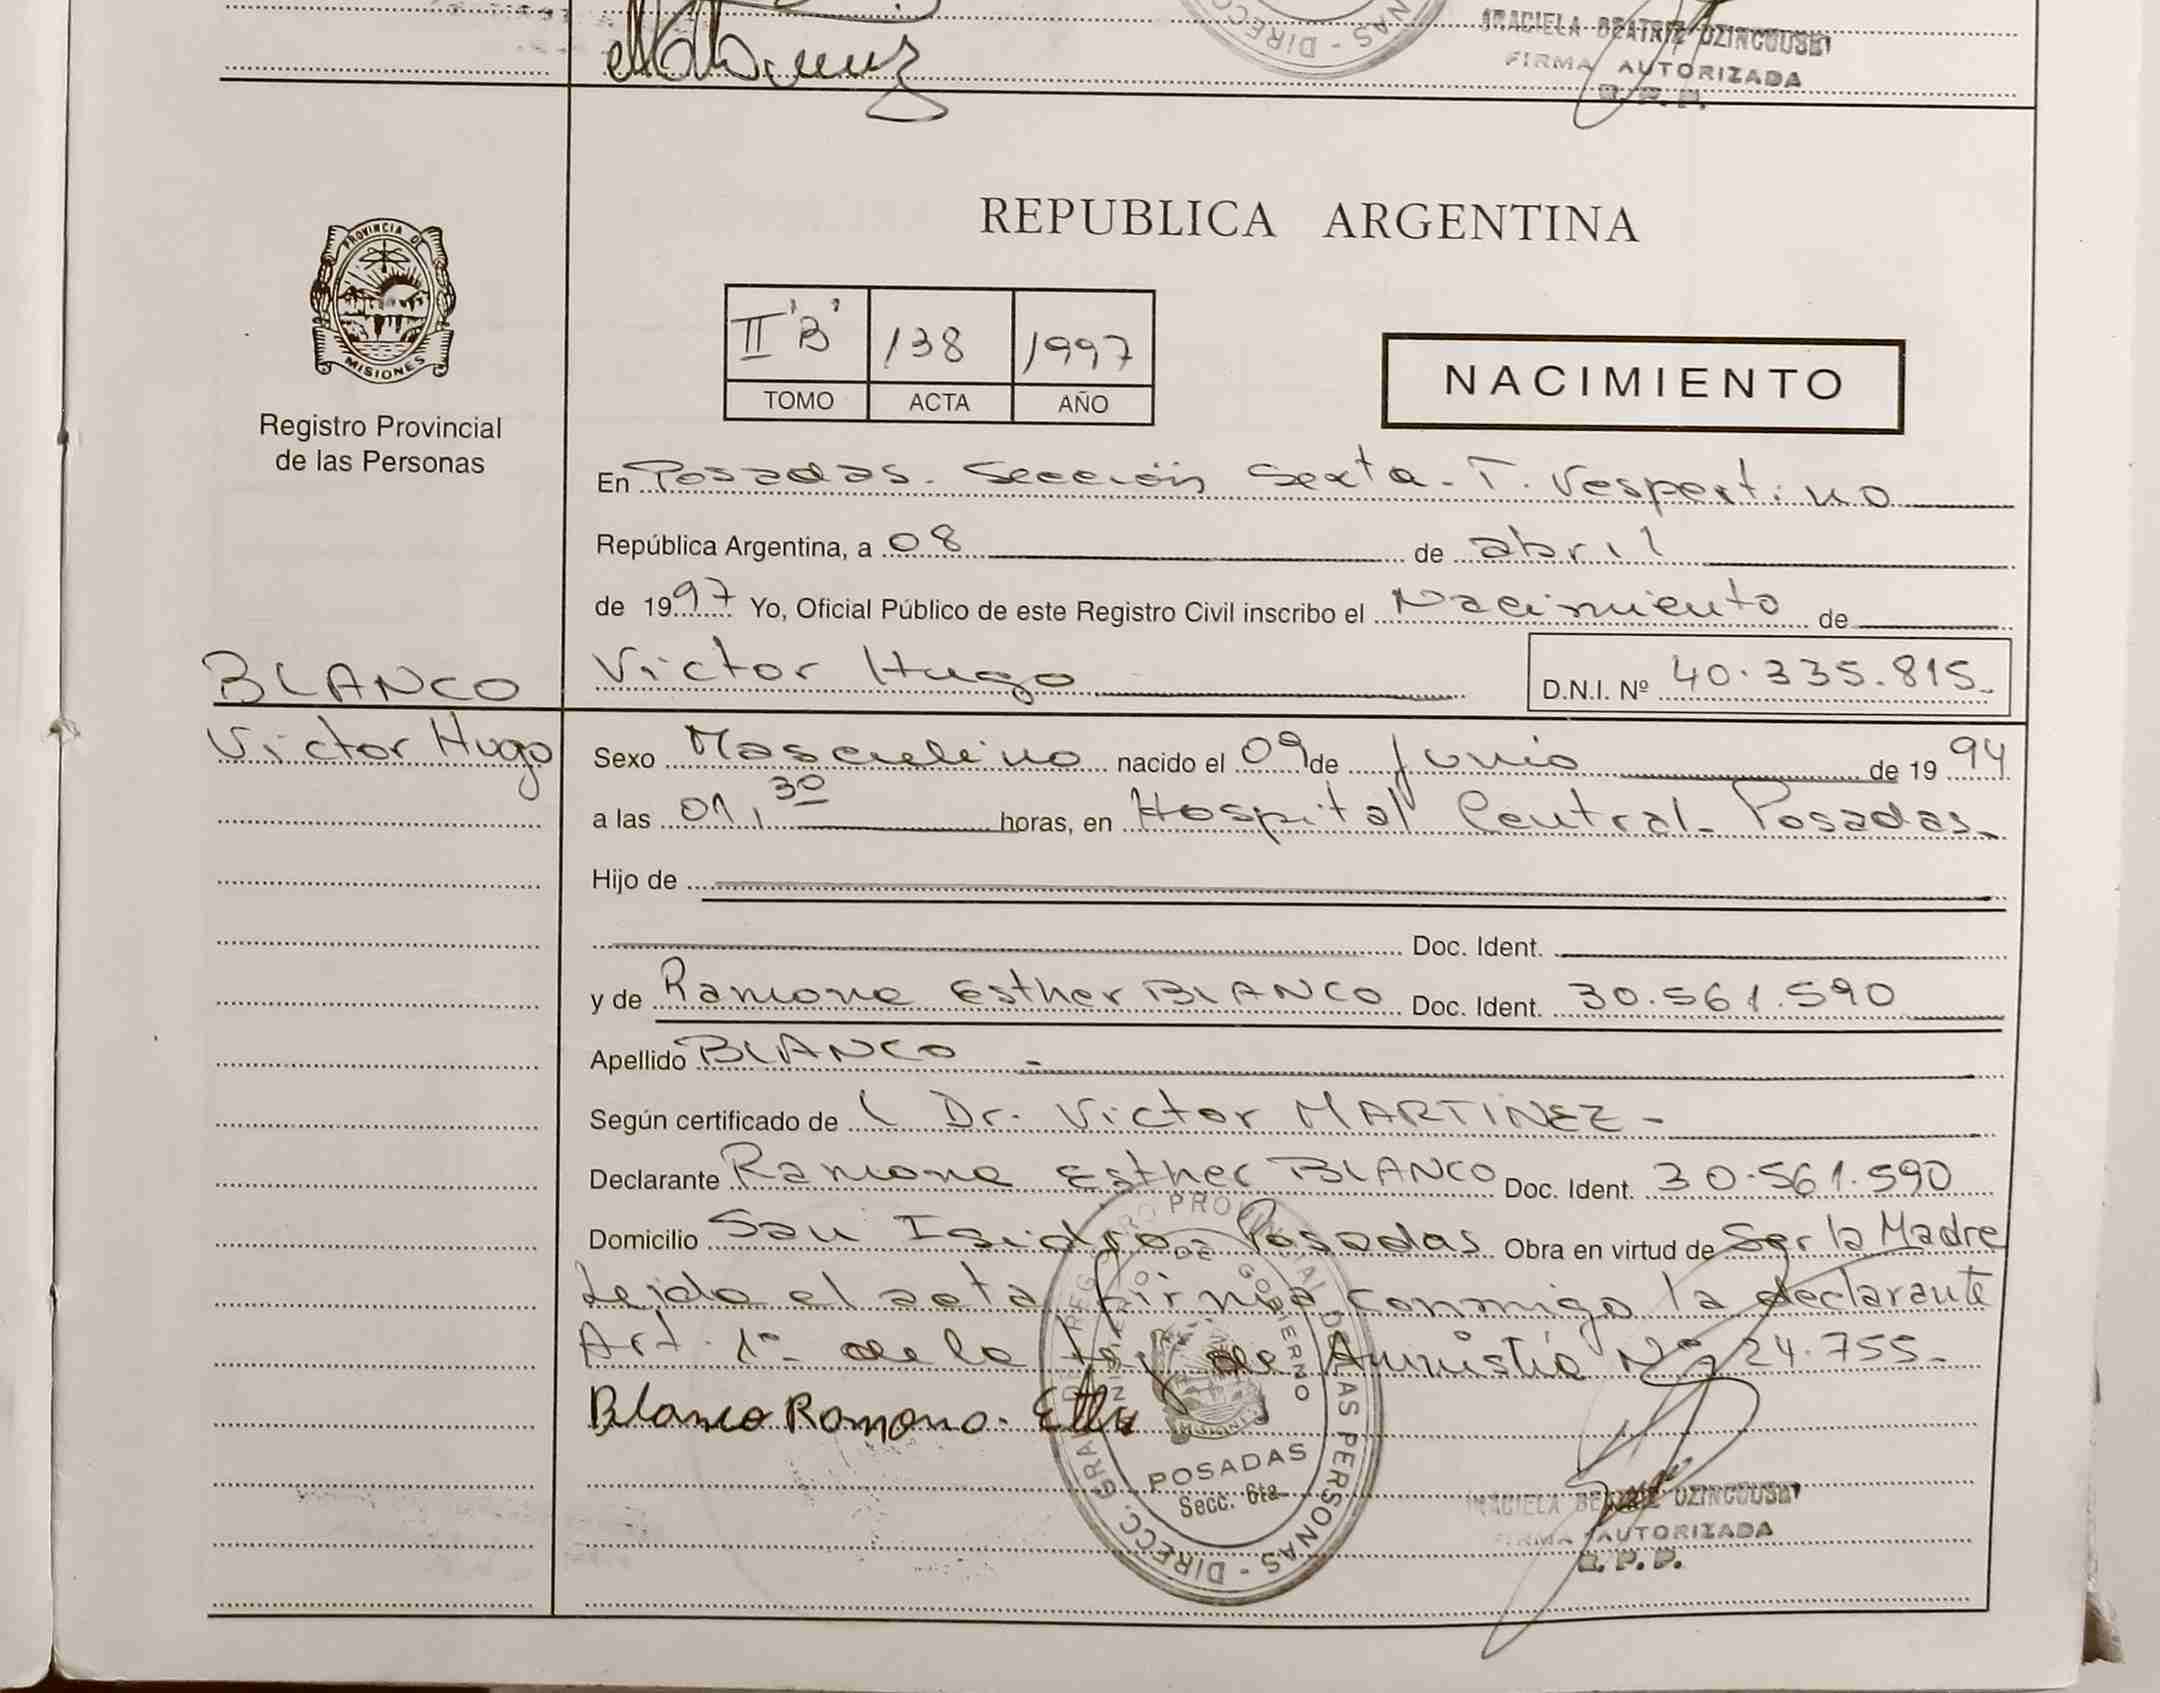 GRACIELA BEATRIZ DZINCOUSKI
FIRMA AUTORIZADA
R. P. P.
PROVINCIA DE
MISIONES
Registro Provincial
de las Personas
REPUBLICA ARGENTINA
II "B" 138 1997
TOMO ACTA AÑO
NACIMIENTO
En Posadas. Sección Sexta. T. Vespertino
República Argentina, a 08 de abril
de 1997 Yo, Oficial Público de este Registro Civil inscribo el Nacimiento de
BLANCO Victor Hugo D.N.I. Nº 40.335.815.
Victor Hugo Sexo Masculino nacido el 09 de Junio de 1994
a las 01,30 horas, en Hospital Central. Posadas.
Hijo de
Doc. Ident.
y de Ramona Esther BLANCO Doc. Ident. 30.561.590
Apellido BLANCO -
Según certificado de Dr. Victor MARTINEZ -
Declarante Ramona Esther BLANCO Doc. Ident. 30.561.590
Domicilio San Isidro. Posadas Obra en virtud de Ser la Madre
Leído el acta firma conmigo la declarante
Art. 1º de la Ley de Amnistía Nº 24.755.
Blanco Ramona. Esther
REGISTRO PROVINCIAL DE LAS PERSONAS - DIRECC. GRAL.
MINISTERIO DE GOBIERNO
POSADAS
Secc. 6ta.
GRACIELA BEATRIZ DZINCOUSKI
FIRMA AUTORIZADA
R. P. P.